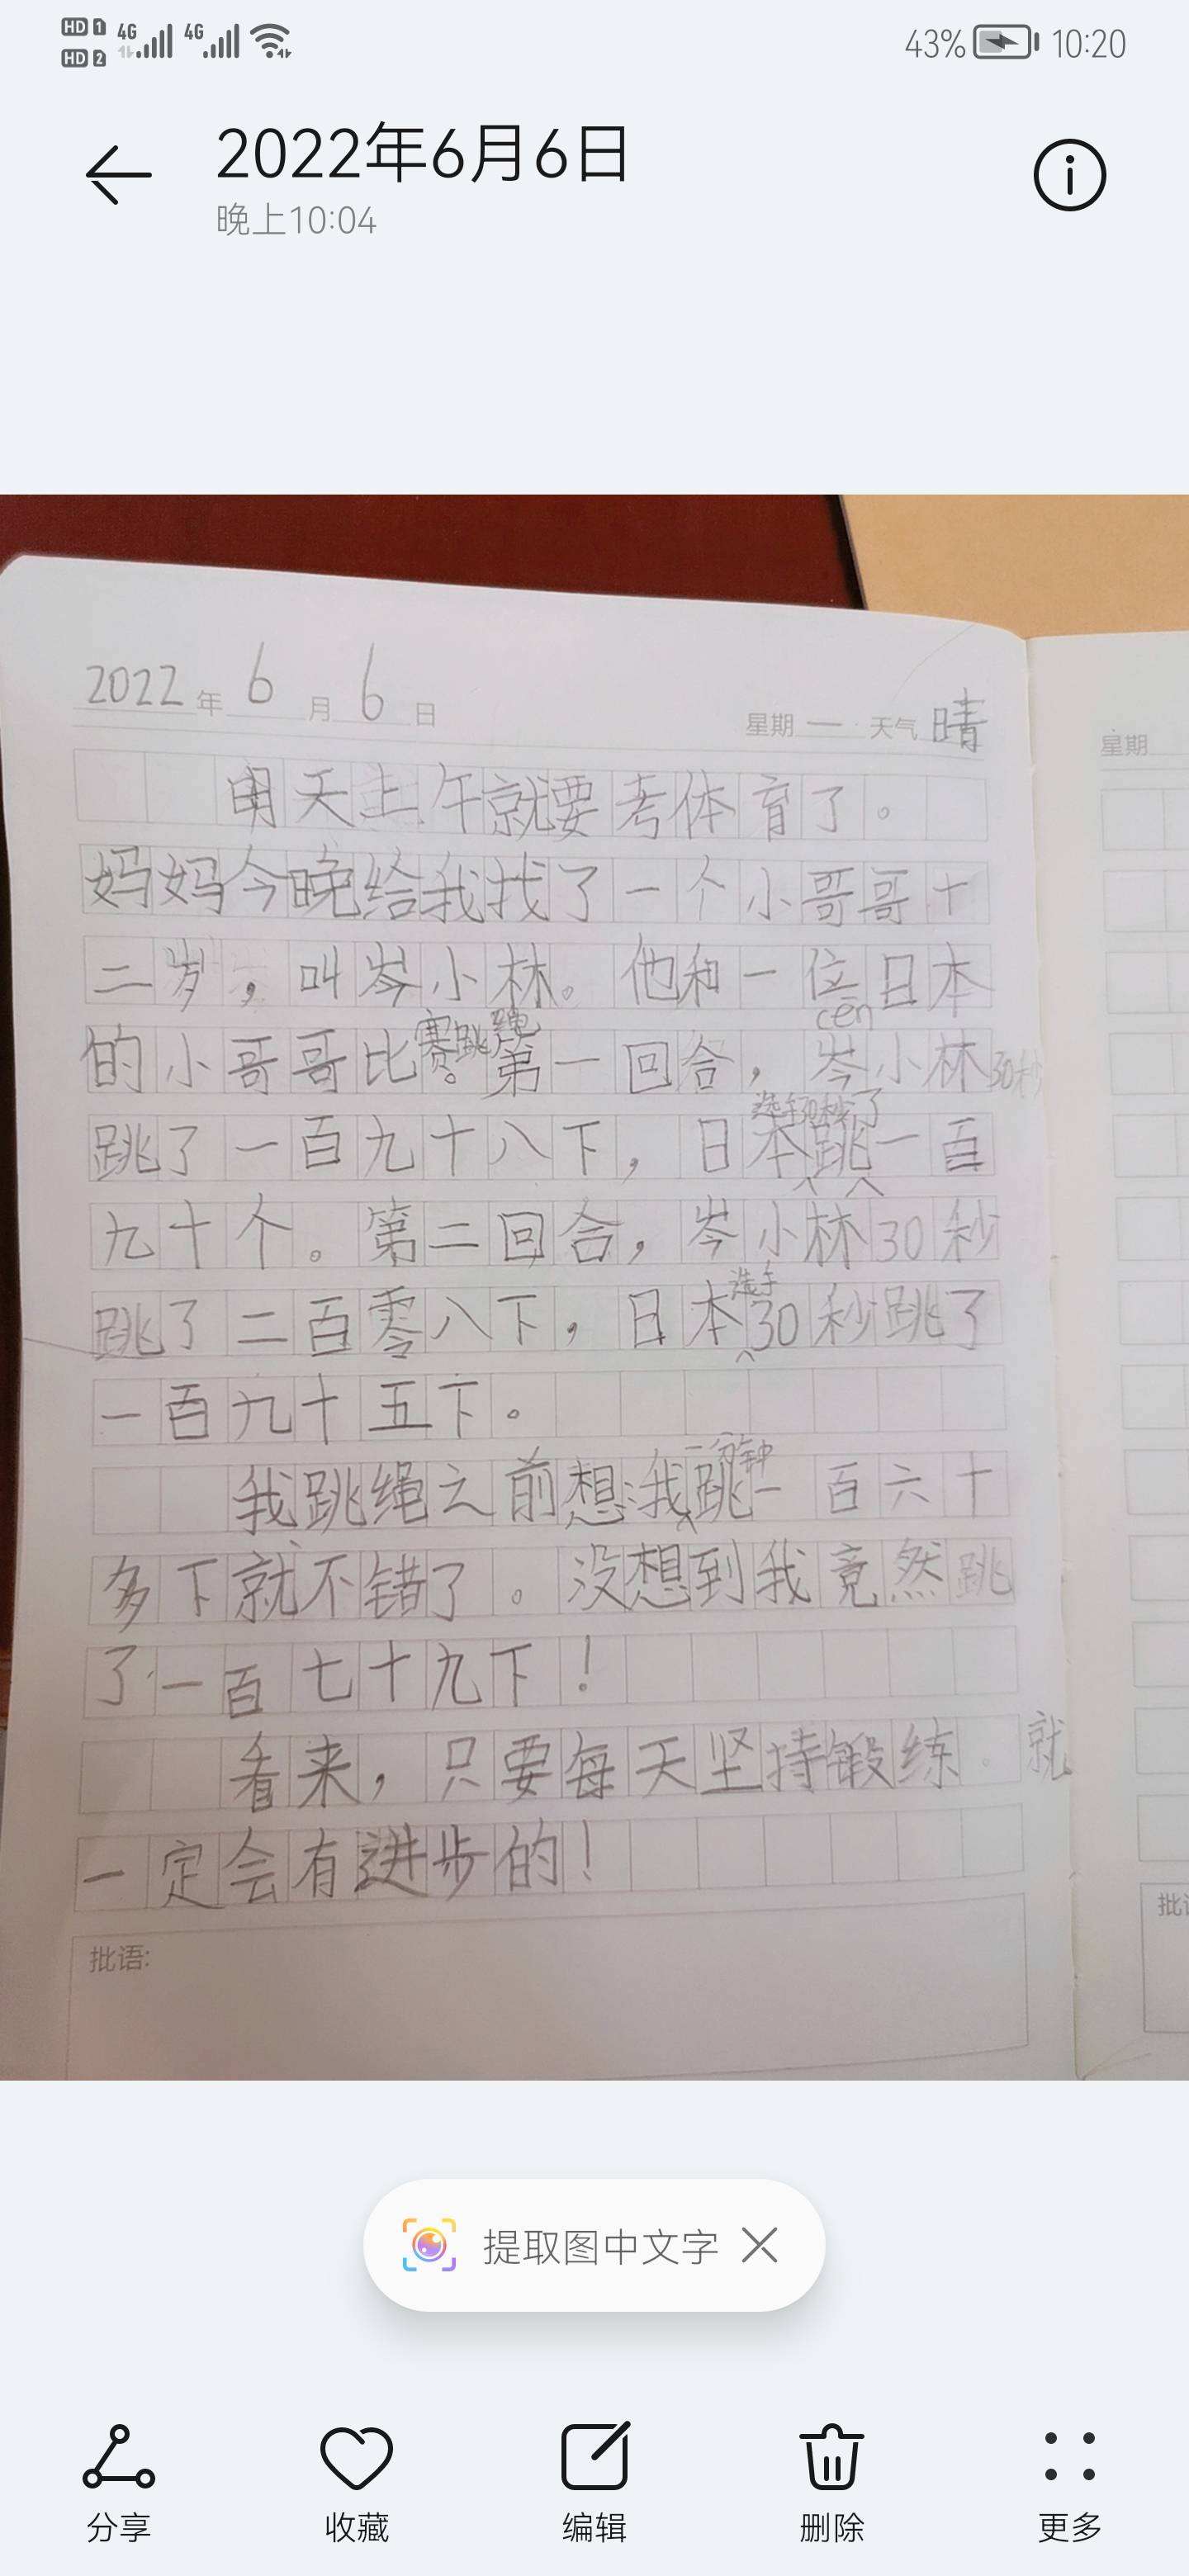 HD 1 4G 4G 43% 10:20
HD 2
2022年6月6日
晚上10:04
2022年6月6日 星期一·天气晴
星期
明天上午就要考体育了。
妈妈今晚给我找了一个小哥哥十
二岁，叫岑小林。他和一位日本
cén
的小哥哥比赛跳绳。第一回合，岑小林30秒
选手30秒了
跳了一百九十八下，日本跳一百
九十个。第二回合，岑小林30秒
选手
跳了二百零八下，日本30秒跳了
一百九十五下。
一分钟
我跳绳之前想：我跳一百六十
多下就不错了。没想到我竟然跳
了一百七十九下！
看来，只要每天坚持锻炼。就
一定会有进步的！
批语:
批语
提取图中文字
分享 收藏 编辑 删除 更多